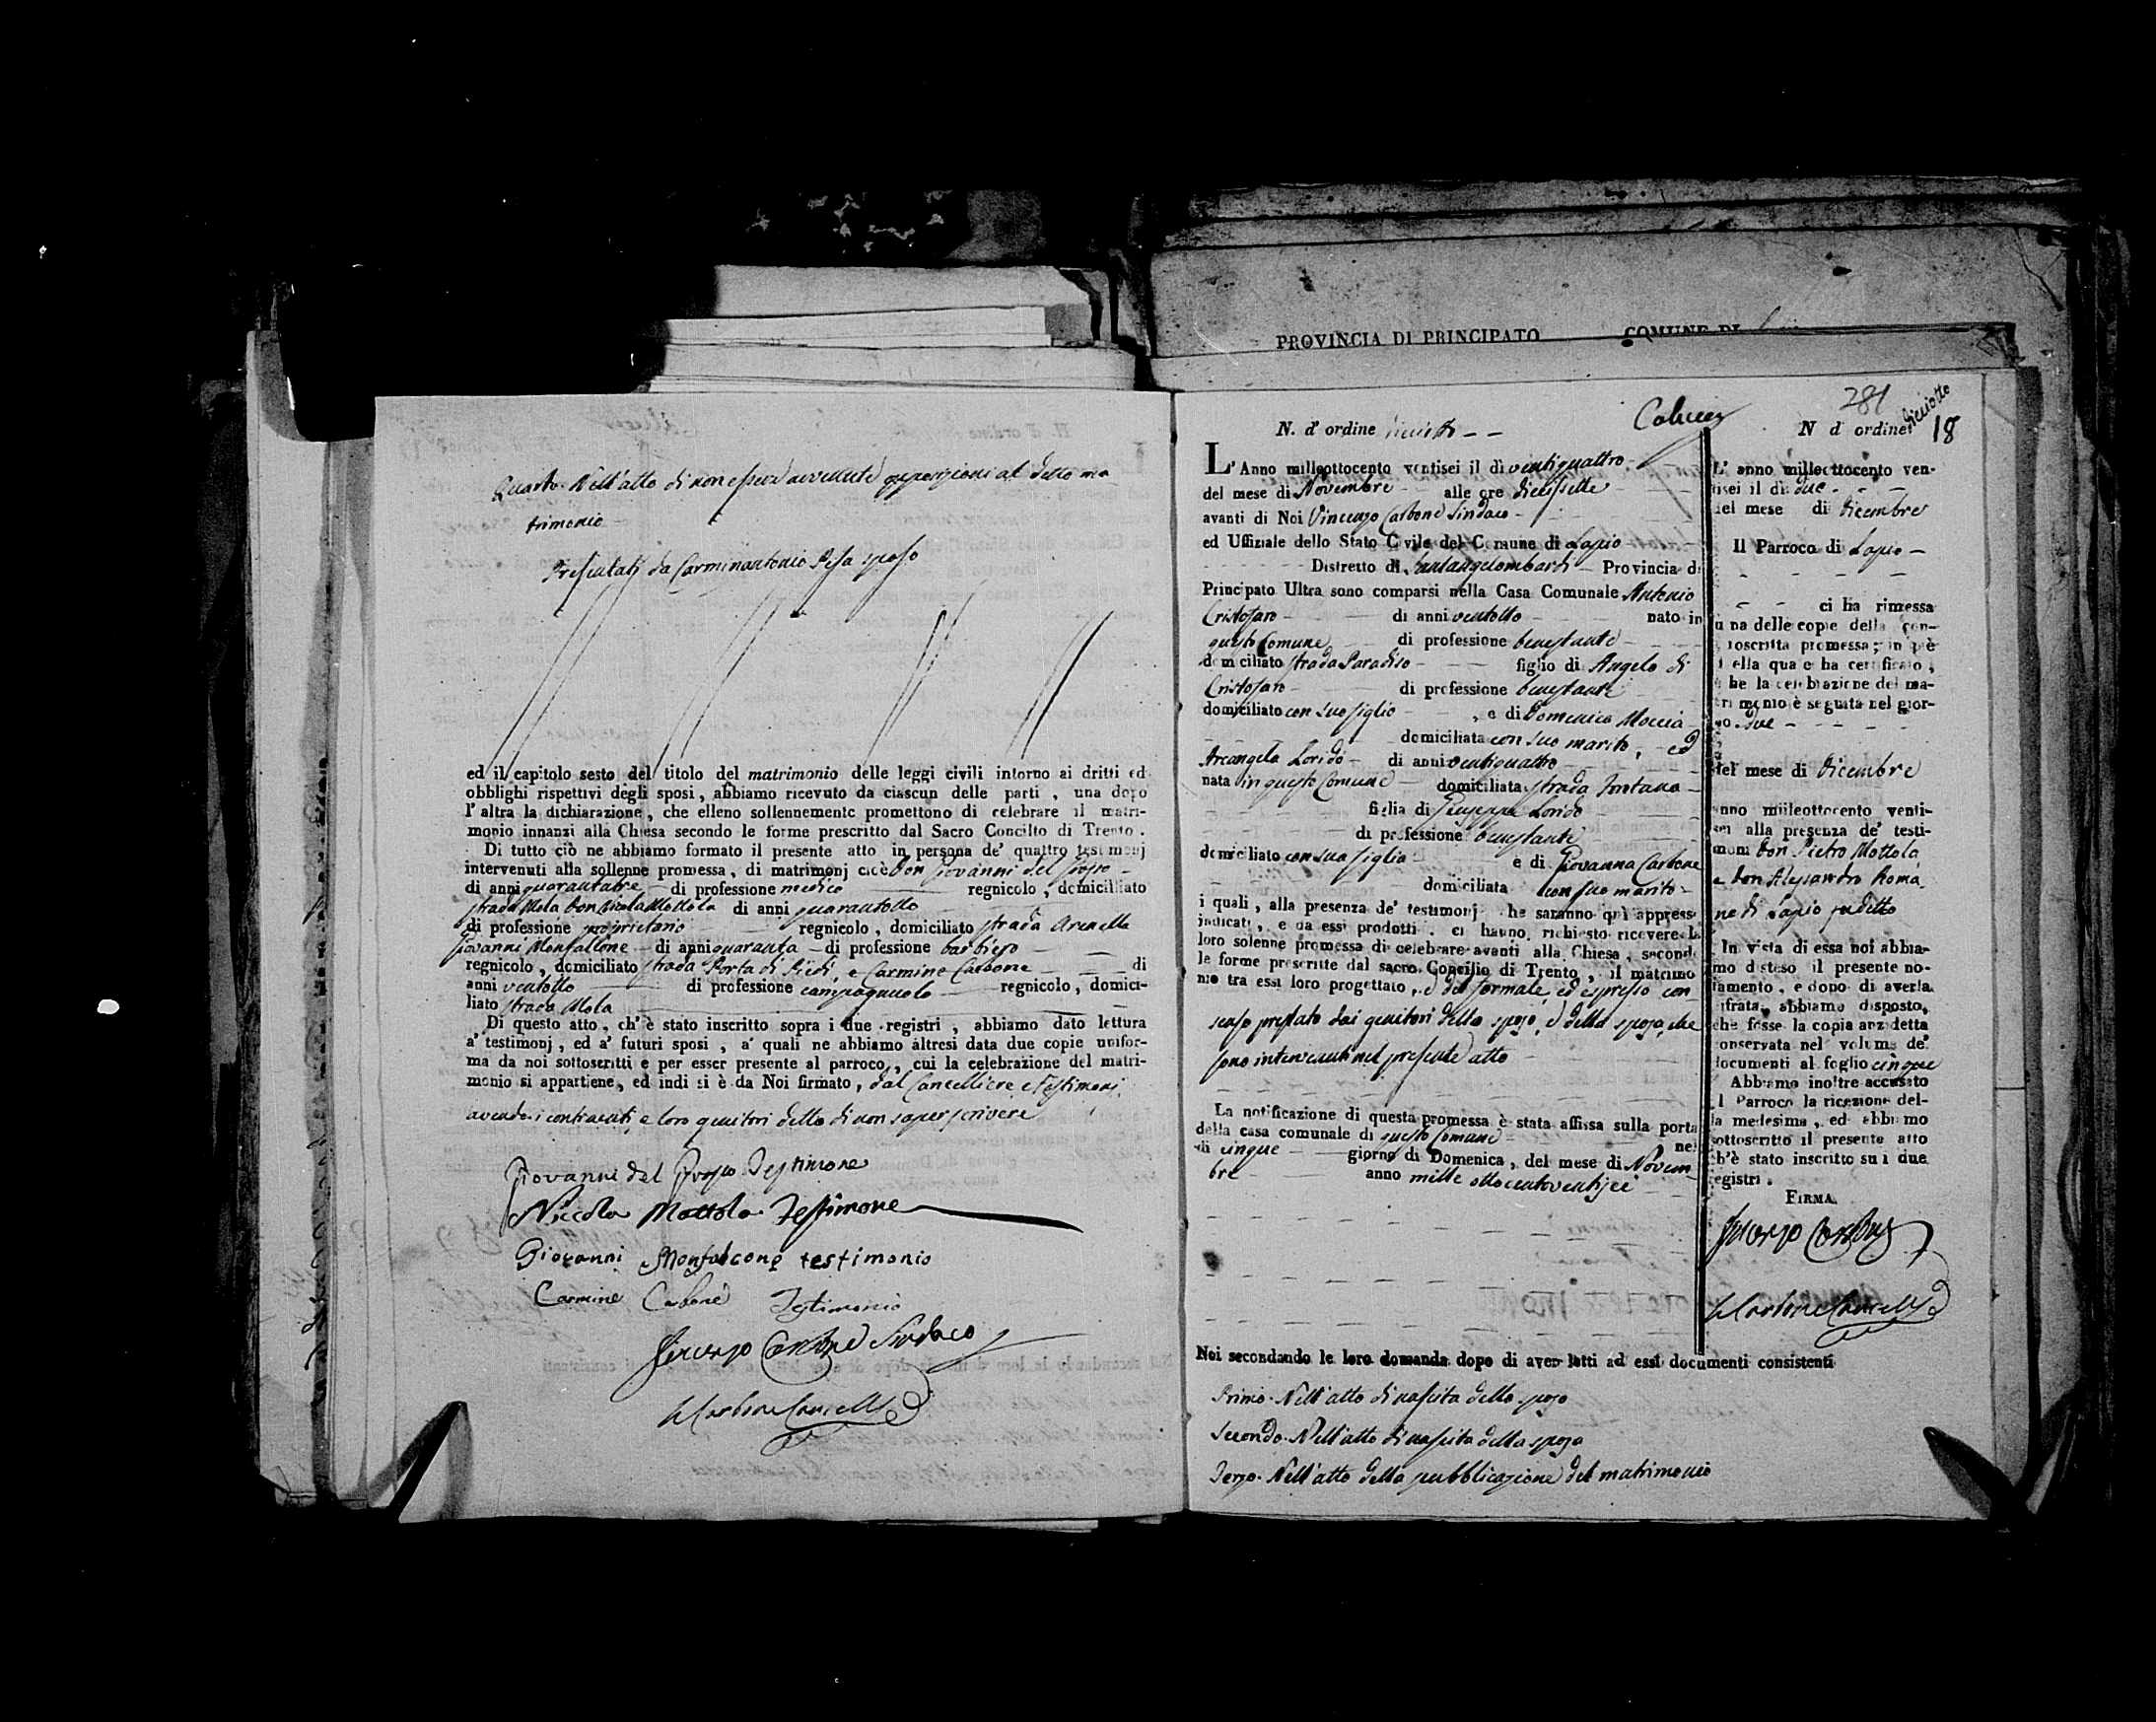 Quarto. Nell'atto di non essere avvenute opposizioni al detto ma
trimonio
Presentati da Carminantonio Pisa sposo
ed il capitolo sesto del titolo del matrimonio delle leggi civili intorno ai dritti ed
obblighi rispettivi degli sposi, abbiamo ricevuto da ciascun delle parti, una dopo
l'altra la dichiarazione, che elleno sollennemente promettono di celebrare il matri-
monio innanzi alla Chiesa secondo le forme prescritto dal Sacro Concilto di Trento.
Di tutto ciò ne abbiamo formato il presente atto in persona de' quattro testimonj
intervenuti alla sollenne promessa, di matrimonj cioè Don Giovanni del
di anni quarantatre di professione medico regnicolo, domicilliato
strada Mola Don Nicola Mottola di anni quarantotto
di professione proprietario regnicolo, domiciliato strada Arenella
Giovanni Monfallone di anni quaranta di professione barbiero
regnicolo, domiciliato strada Porta di Piedi, e Carmine Carbone di
anni ventotto di professione campagnuolo regnicolo, domici-
liato strada Mola
Di questo atto, ch'è stato inscritto sopra i due registri, abbiamo dato lettura
a' testimonj, ed a' futuri sposi, a' quali ne abbiamo altresi data due copie unifor-
ma da noi sottoscritti e per esser presente al parroco, cui la celebrazione del matri-
monio si appartiene, ed indi si è da Noi firmato, dal Cancelliere e testimonj
avendo i contraenti, e loro genitori detto di non saper scrivere
Giovanni del Testimone
Niccola Mottola Testimone
Giovanni Monfalcone testimonio
Carmine Carbone Testimonio
Vincenzo Carbone Sindaco
Carbone Cancell
PROVINCIA DI PRINCIPATO COMUNE DI
281
N. d' ordine diciotto
L'Anno milleottocento ventisei il dì ventiquattro
del mese di Novembre alle ore diciassette
avanti di Noi Vincenzo Carbone Sindaco
ed Uffiziale dello Stato Civile del Comune di Lapio
Distretto di Santangelombardi Provincia di
Principato Ultra sono comparsi nella Casa Comunale Antonio
Cristofaro di anni ventotto nato in
questo Comune di professione benestante
domiciliato strada Paradiso figlio di Angelo di
Cristofaro di professione benestante
domiciliato con suo figlio e di Domenica Moccia
domiciliata con suo marito, ed
Arcangela Lorido di anni ventiquattro
nata in questo Comune domiciliata strada Fontana
figlia di Giuseppe Lorido
di professione benestante
domiciliato con sua figlia e di Giovanna Carbone
domiciliata con suo marito
i quali, alla presenza de' testimonj che saranno quì appresso
indicati, e da essi prodotti, ci hanno richiesto ricevere la
loro solenne promessa di celebrare avanti alla Chiesa, secondo
le forme prescritte dal sacro Concilio di Trento, il matrimo
nio tra essi loro progettato, e del formale, ed espresso con
senso prestato dai genitori dello sposo, e della sposa, che
sono intervenuti nel presente atto
La notificazione di questa promessa è stata affissa sulla porta
della casa comunale di questo Comune nel
di cinque giorno di Domenica, del mese di Novem
bre anno mille ottocentoventisei
Noi secondando le loro domanda dopo di aver letti ad essi documenti consistenti
Primo. Nell'atto di nascita dello sposo
Secondo. Nell'atto di nascita della sposa
Terzo. Nell'atto della pubblicazione del matrimonio
N d' ordine diciotto 18
L' anno milleottocento ven-
tisei il dì due
del mese di Dicembre
Il Parroco di Lapio
ci ha rimessa
una delle copie della con-
troscritta promessa; in piè
della quale ha certificato,
che la celebrazione del ma-
trimonio è seguita nel gior-
no due
del mese di Dicembre
anno milleottocento venti-
sei alla presenza de' testi-
moni Don Pietro Mottola
e Don Alessandro Roma
ne di Lapio sudetto
In vista di essa noi abbia-
mo disteso il presente no-
tamento, e dopo di averla
cifrata, abbiamo disposto,
che fosse la copia anzidetta
conservata nel volume de'
documenti al foglio cinque
Abbiamo inoltre accusato
al Parroco la ricezione del-
la medesima, ed abbiamo
sottoscritto il presente atto
ch'è stato inscritto su i due
registri.
FIRMA.
Vincenzo Carbone
Carbone Cancell